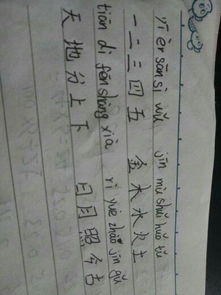 yī èr sān sì wǔ jīn mù shuǐ huǒ tǔ
一二三四五 金木水火土
tiān dì fēn shàng xià rì yuè zhào jīn gǔ
天地分上下 日月照今古